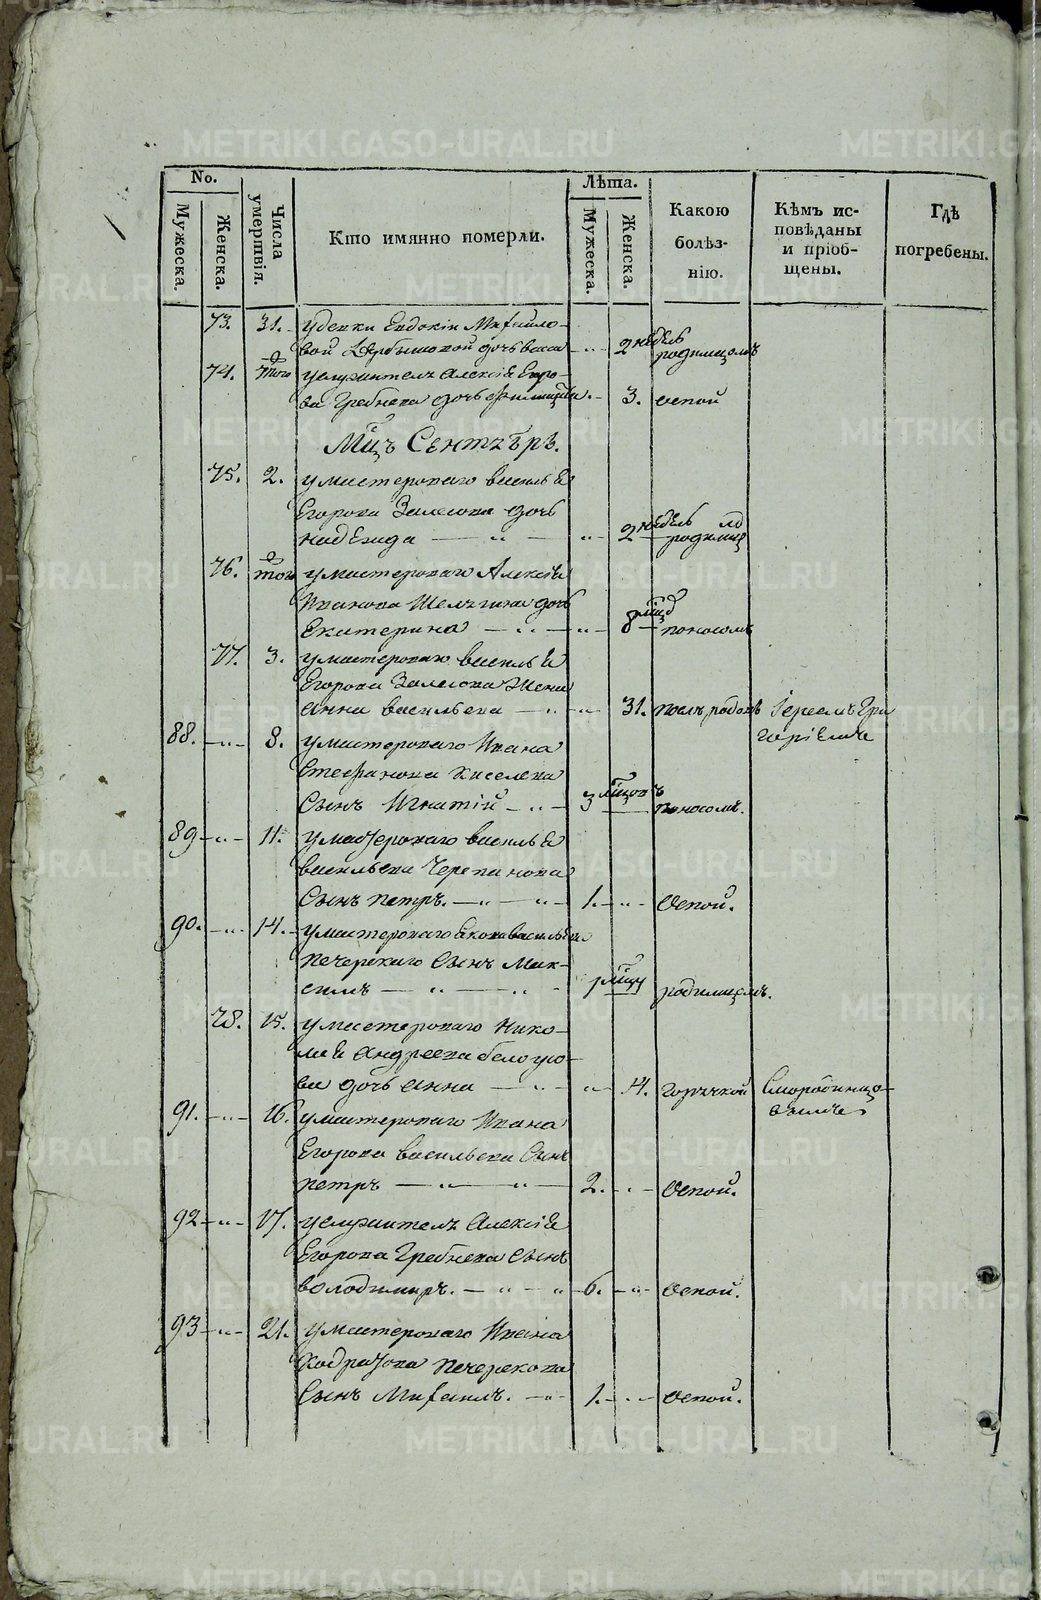 No.
Мужеска.
Женска.
Числа умершвія.
Кто имянно померли.
Лѣта.
Мужеска.
Женска.
Какою болѣз-нію.
Кѣмъ ис-повѣданы и пріоб-щены.
Гдѣ погребены.
73. 31. у девки Евдокіи Михайло-
вой дочь 2 недель родимцомъ
74. того у служителя Алексѣя Егоро-
ва Гребнева дочь 3. оспой
Мцъ Сентябрь.
75. 2. у мастероваго Василья
Егорова Залесова дочь
надежда 2 недель родимц
76. того у мастероваго Алексѣя
Иванова дочь
Екатерина 8 мцд поносомъ
77. 3. у мастероваго Василья
Егорова Залесова жена
Анна Васильева 31. Іереемъ Гри
горіемъ
88. 8. у мастероваго Ивана
Стефанова Киселева
Сынъ Игнатій 3 мцовъ поносомъ.
89 11. у мастероваго Василья
Васильева Черепанова
Сынъ петръ. 1. Оспой.
90. 14. у мастероваго Якова Васильева
Печерскаго Сынъ Мак-
симъ 1 мцу родимцомъ.
78. 15. у мастероваго Нико-
лая Андреева белоусо-
ва дочь Анна 14. горячкой Смородинцо-
вымъ
91. 16. у мастероваго Ивана
Егорова Васильева Сынъ
петръ 2. Оспой.
92 17. у служителя Алексѣя
Егорова Гребнева Сынъ
володимиръ. 6. Оспой.
93 21. у мастероваго Ивана
Кодратова Печерскова
Сынъ Михаилъ. 1. Оспой.
METRIKI.GASO-URAL.RU